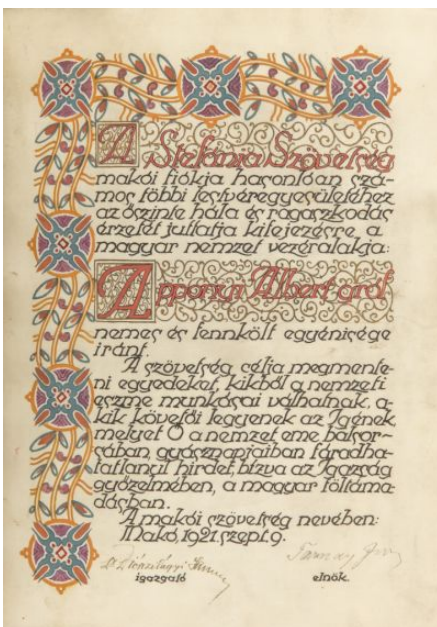 A Stefánia Szövetség
makói fiókja hasonlóan szá-
mos többi testvéregyesületéhez
az őszinte hála és ragaszkodás
érzetét juttatja kifejezésre, a
magyar nemzet vezéralakja:
Apponyi Albert gróf
nemes és fennkölt egyénisége
iránt.
A szövetség célja megmente-
ni egyedeket, kikből a nemzeti
eszme munkásai válhatnak, a-
kik követői legyenek az Igének,
melyet Ő a nemzet eme balsor-
sában, gyásznapjaiban fáradha-
tatlanul hirdet, bízva az Igazság
győzelmében, a magyar föltáma-
dásban.
A makói szövetség nevében:
Makó, 1921. szept. 9.
Dr Diószilágyi
igazgató
elnök.